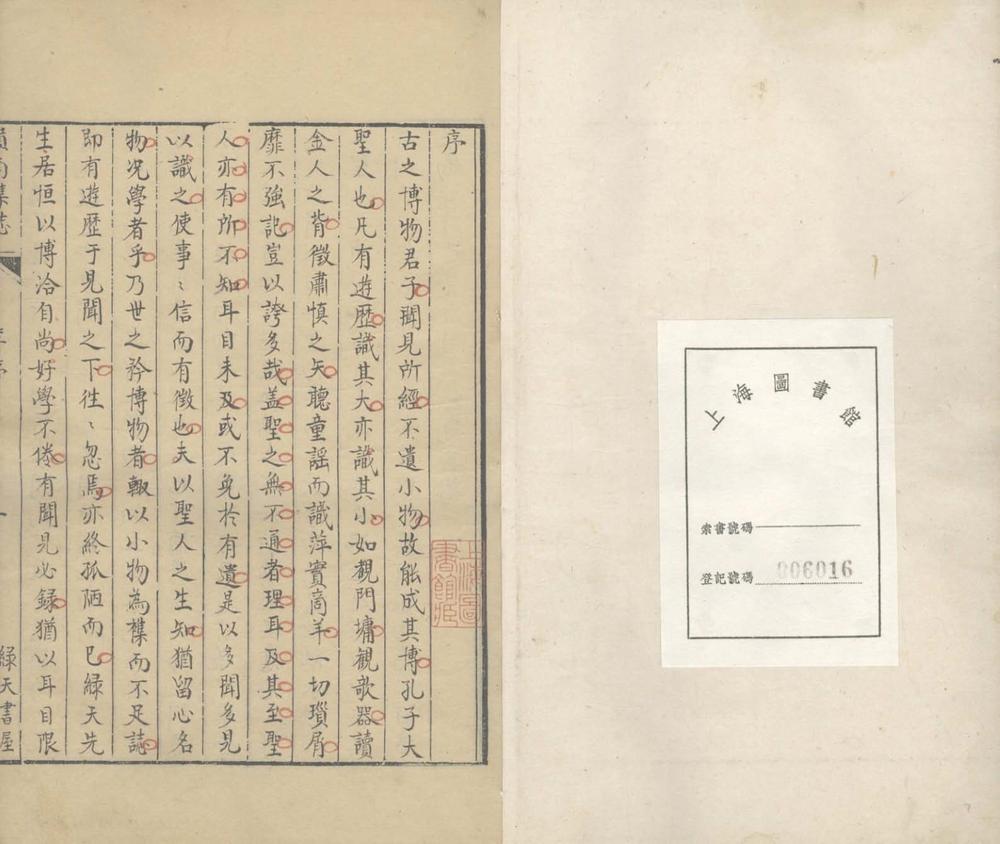 上海圖書館
索書號碼
登記號碼 806016
序
古之博物君子聞見所經不遺小物故能成其博孔子大
聖人也凡有遊歷識其大亦識其小如觀門墉觀欹器讀
金人之背徵肅慎之矢聽童謡而識萍實商羊一切瑣屑
靡不強記豈以誇多哉盖聖之無不通者理耳及其至聖
人亦有所不知耳目未及或不免於有遺是以多聞多見
以識之使事〻信而有徵也夫以聖人之生知猶留心名
物况學者乎乃世之矜博物者輙以小物為樸而不足誌
即有遊歷于見聞之下徃〻忽焉亦終孤陋而已緑天先
生居恒以博洽自尚好學不倦有聞見必録猶以耳目限
嶺南集誌
序
一
緑天書屋
上海圖書館藏